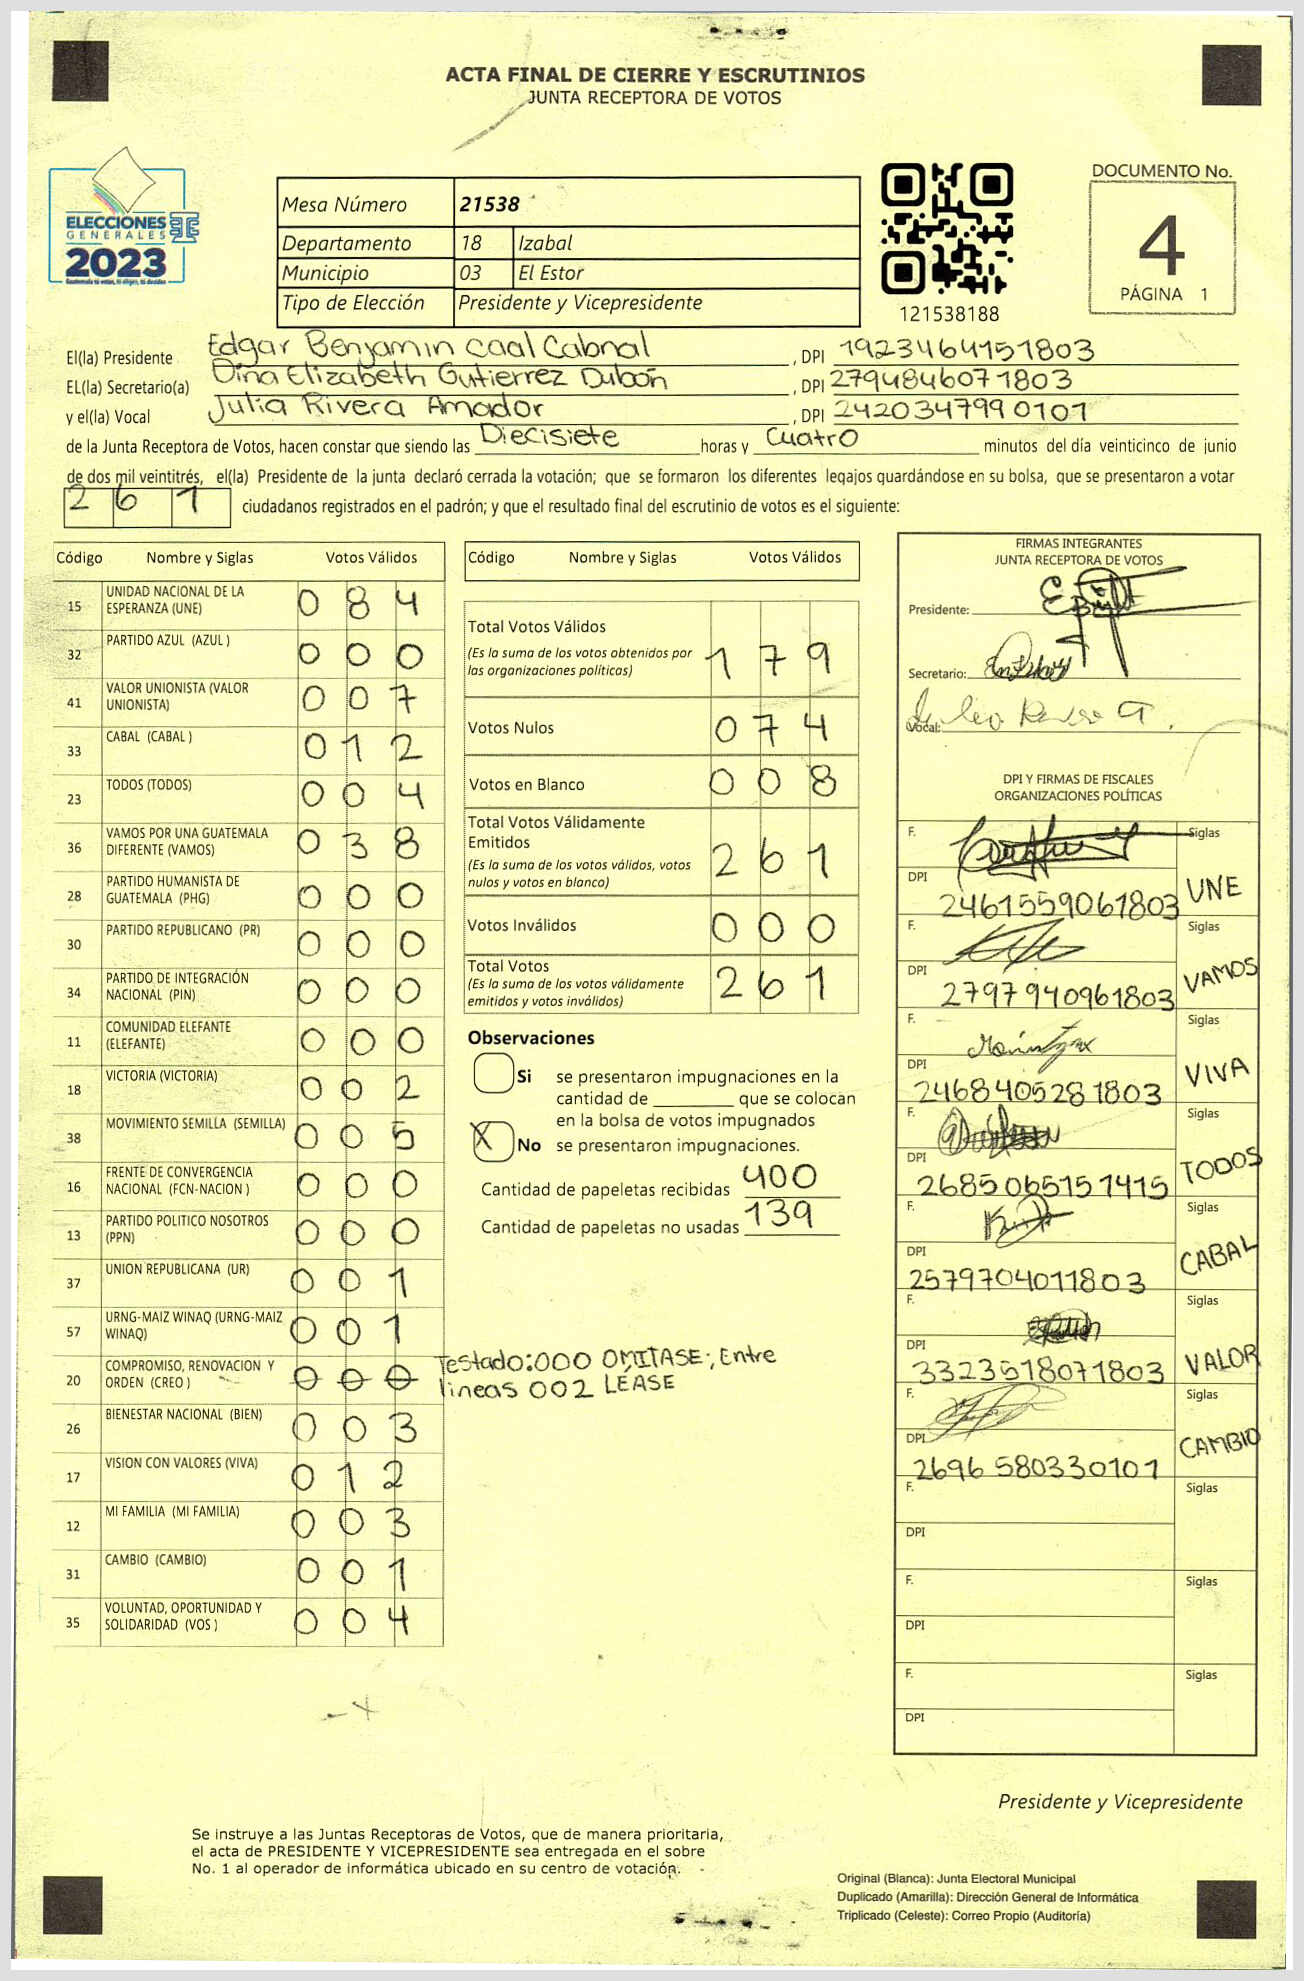 ACTA FINAL DE CIERRE Y ESCRUTINIOS
JUNTA RECEPTORA DE VOTOS
ELECCIONES
GENERALES
2023
Mesa Número 21538
Departamento 18 Izabal
Municipio 03 El Estor
Tipo de Elección Presidente y Vicepresidente
121538188
DOCUMENTO No.
4
PÁGINA 1
El(la) Presidente Edgar Benjamin Caal Cabnal , DPI 1923464151803
EL(la) Secretario(a) Dina Elizabeth Gutierrez Dubón , DPI 2794846071803
y el(la) Vocal Julia Rivera Amador , DPI 2420347990101
de la Junta Receptora de Votos, hacen constar que siendo las Diecisiete horas y Cuatro minutos del día veinticinco de junio
de dos mil veintitrés, el(la) Presidente de la junta declaró cerrada la votación; que se formaron los diferentes legajos guardándose en su bolsa, que se presentaron a votar
2 6 1 ciudadanos registrados en el padrón; y que el resultado final del escrutinio de votos es el siguiente:
Código Nombre y Siglas Votos Válidos
15 UNIDAD NACIONAL DE LA ESPERANZA (UNE) 0 8 4
32 PARTIDO AZUL (AZUL ) 0 0 0
41 VALOR UNIONISTA (VALOR UNIONISTA) 0 0 7
33 CABAL (CABAL ) 0 1 2
23 TODOS (TODOS) 0 0 4
36 VAMOS POR UNA GUATEMALA DIFERENTE (VAMOS) 0 3 8
28 PARTIDO HUMANISTA DE GUATEMALA (PHG) 0 0 0
30 PARTIDO REPUBLICANO (PR) 0 0 0
34 PARTIDO DE INTEGRACIÓN NACIONAL (PIN) 0 0 0
11 COMUNIDAD ELEFANTE (ELEFANTE) 0 0 0
18 VICTORIA (VICTORIA) 0 0 2
38 MOVIMIENTO SEMILLA (SEMILLA) 0 0 5
16 FRENTE DE CONVERGENCIA NACIONAL (FCN-NACION ) 0 0 0
13 PARTIDO POLITICO NOSOTROS (PPN) 0 0 0
37 UNION REPUBLICANA (UR) 0 0 1
57 URNG-MAIZ WINAQ (URNG-MAIZ WINAQ) 0 0 1
20 COMPROMISO, RENOVACION Y ORDEN (CREO ) 0 0 0
Testado:000 OMITASE; Entre
lineas 002 LÉASE
26 BIENESTAR NACIONAL (BIEN) 0 0 3
17 VISION CON VALORES (VIVA) 0 1 2
12 MI FAMILIA (MI FAMILIA) 0 0 3
31 CAMBIO (CAMBIO) 0 0 1
35 VOLUNTAD, OPORTUNIDAD Y SOLIDARIDAD (VOS ) 0 0 4
Código Nombre y Siglas Votos Válidos
Total Votos Válidos 1 7 9
(Es la suma de los votos obtenidos por
las organizaciones políticas)
Votos Nulos 0 7 4
Votos en Blanco 0 0 8
Total Votos Válidamente
Emitidos 2 6 1
(Es la suma de los votos válidos, votos
nulos y votos en blanco)
Votos Inválidos 0 0 0
Total Votos 2 6 1
(Es la suma de los votos válidamente
emitidos y votos inválidos)
Observaciones
Si se presentaron impugnaciones en la
cantidad de ________ que se colocan
en la bolsa de votos impugnados
X No se presentaron impugnaciones.
Cantidad de papeletas recibidas 400
Cantidad de papeletas no usadas 139
FIRMAS INTEGRANTES
JUNTA RECEPTORA DE VOTOS
Presidente:
Secretario:
Vocal:
DPI Y FIRMAS DE FISCALES
ORGANIZACIONES POLÍTICAS
F. Siglas
DPI 2461559061803 UNE
F. Siglas
DPI 2797940961803 VAMOS
F. Siglas
DPI 2468405281803 VIVA
F. Siglas
DPI 2685065151415 TODOS
F. Siglas
DPI 2579704011803 CABAL
F. Siglas
DPI 3323518071803 VALOR
F. Siglas
DPI 2696580330101 CAMBIO
F. Siglas
DPI
F. Siglas
DPI
F. Siglas
DPI
Presidente y Vicepresidente
Se instruye a las Juntas Receptoras de Votos, que de manera prioritaria,
el acta de PRESIDENTE Y VICEPRESIDENTE sea entregada en el sobre
No. 1 al operador de informática ubicado en su centro de votación.
Original (Blanca): Junta Electoral Municipal
Duplicado (Amarilla): Dirección General de Informática
Triplicado (Celeste): Correo Propio (Auditoría)